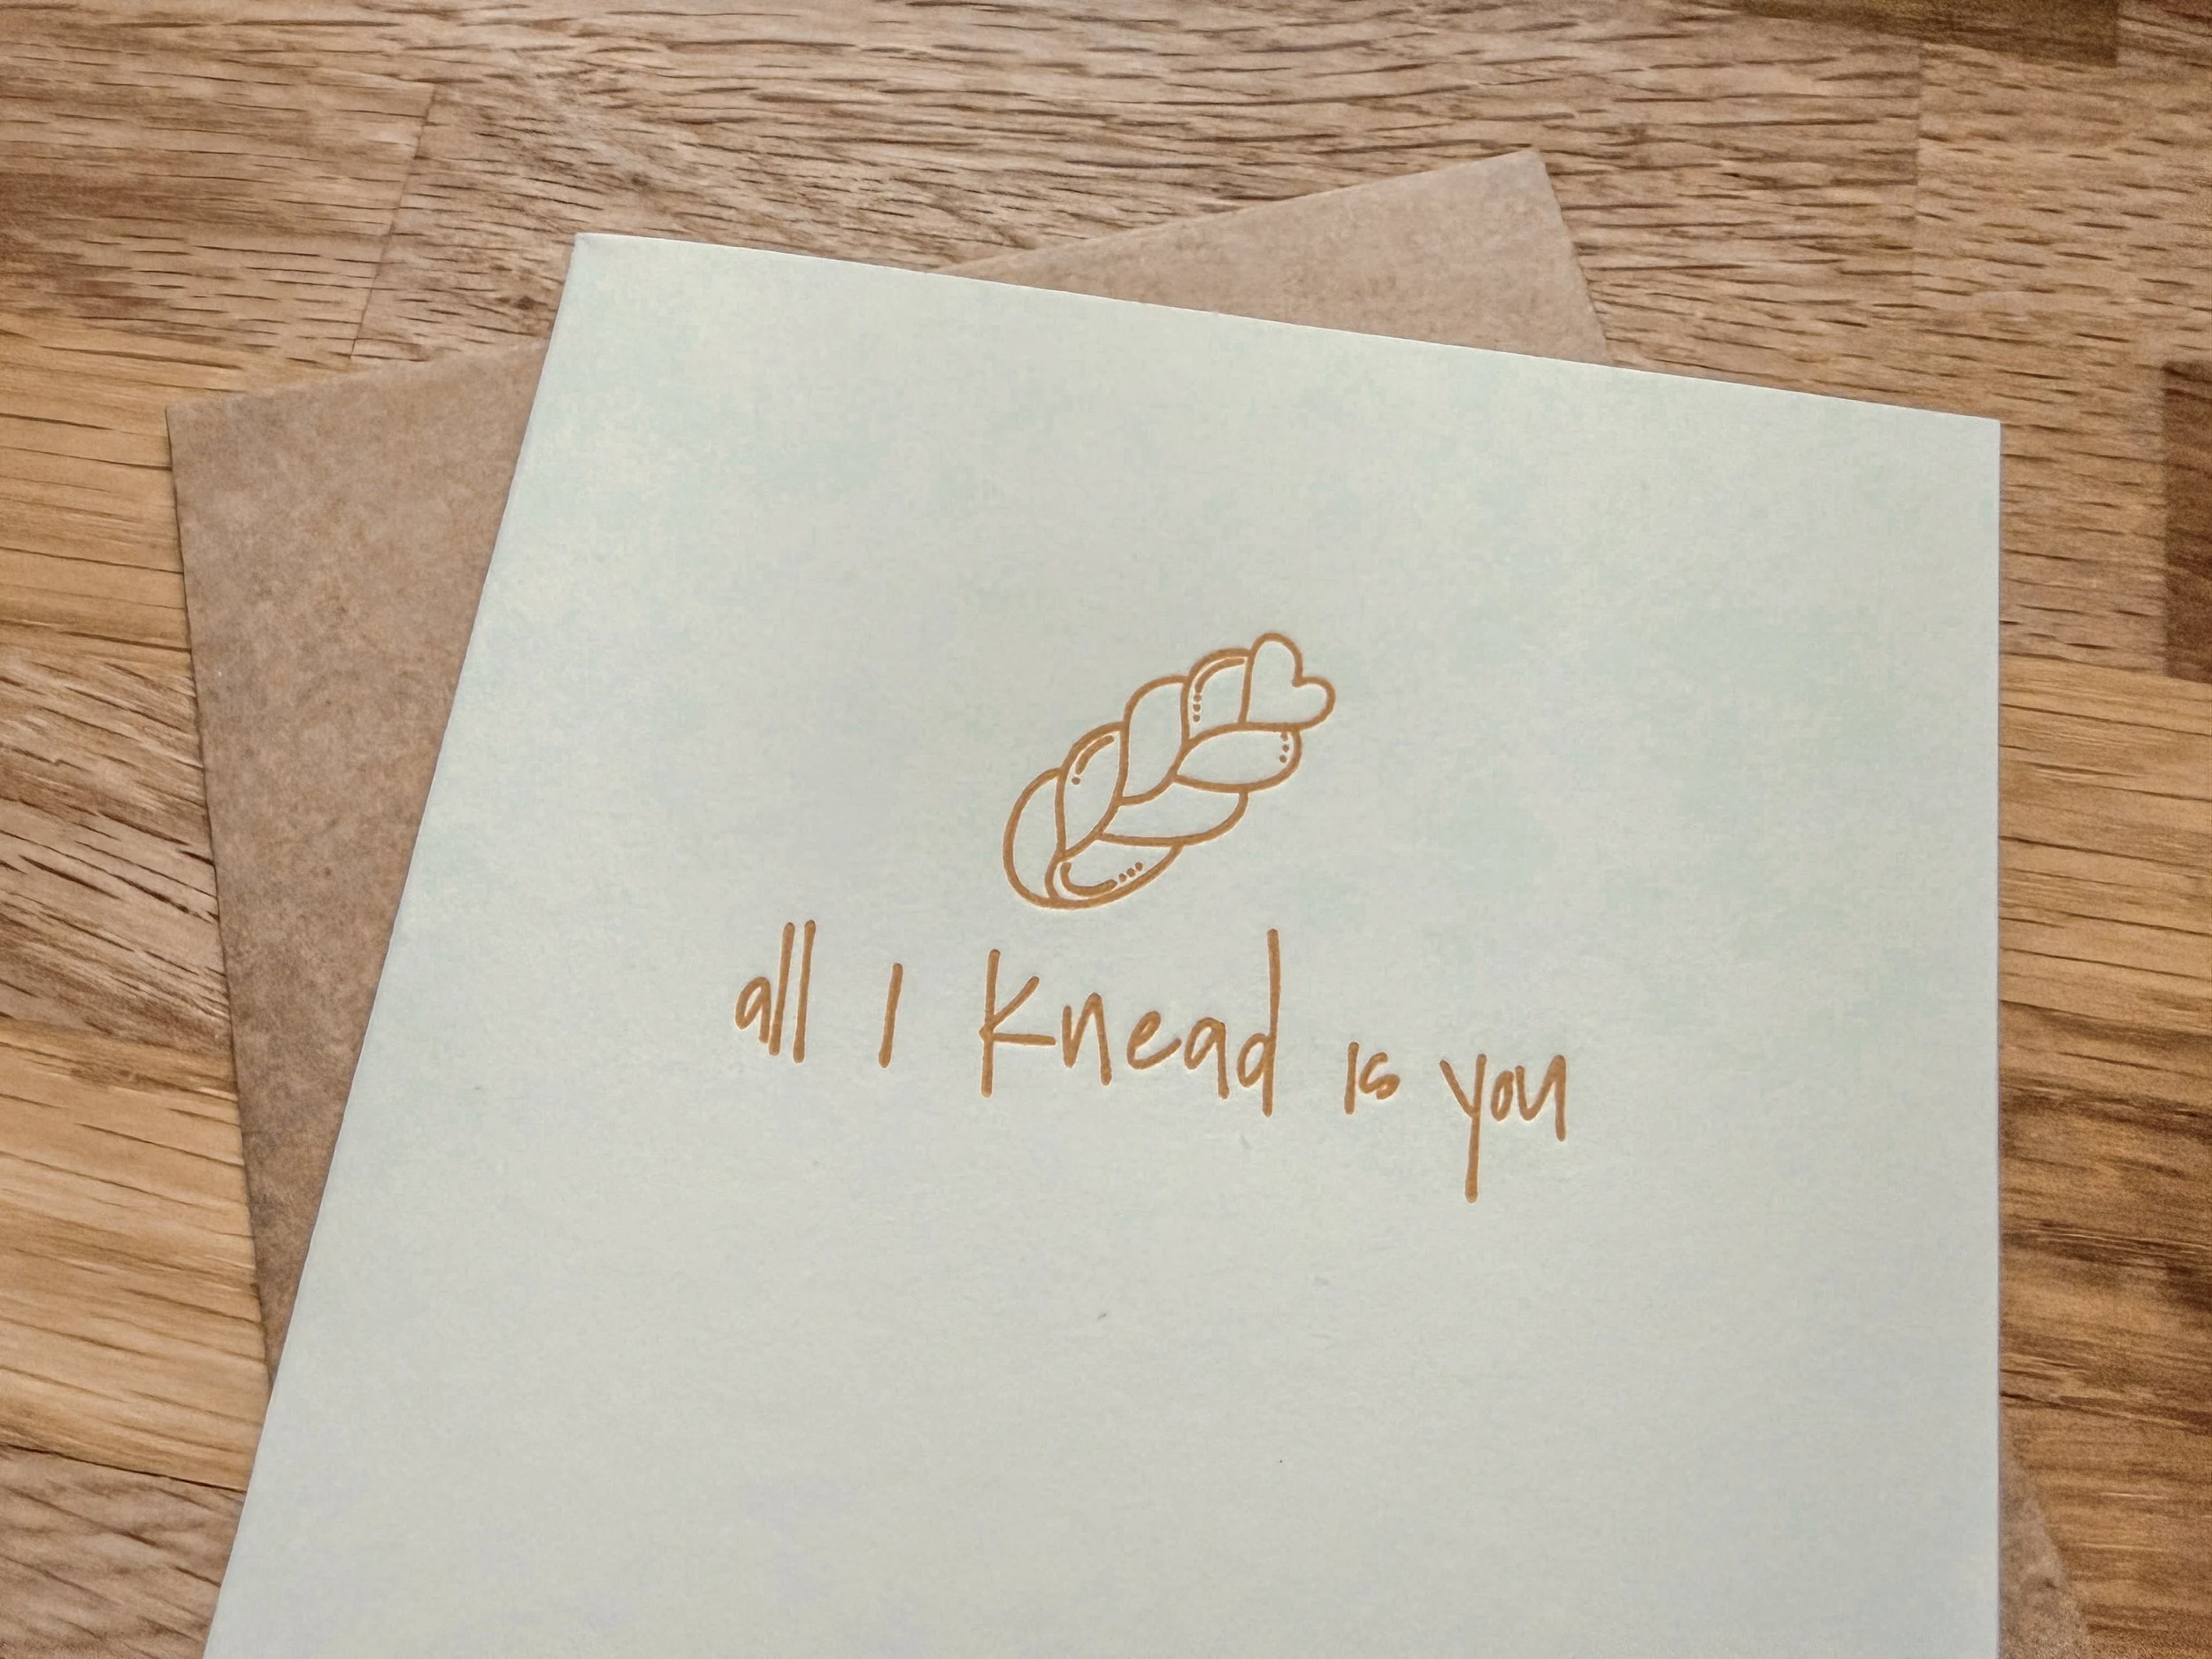 all I Knead is you